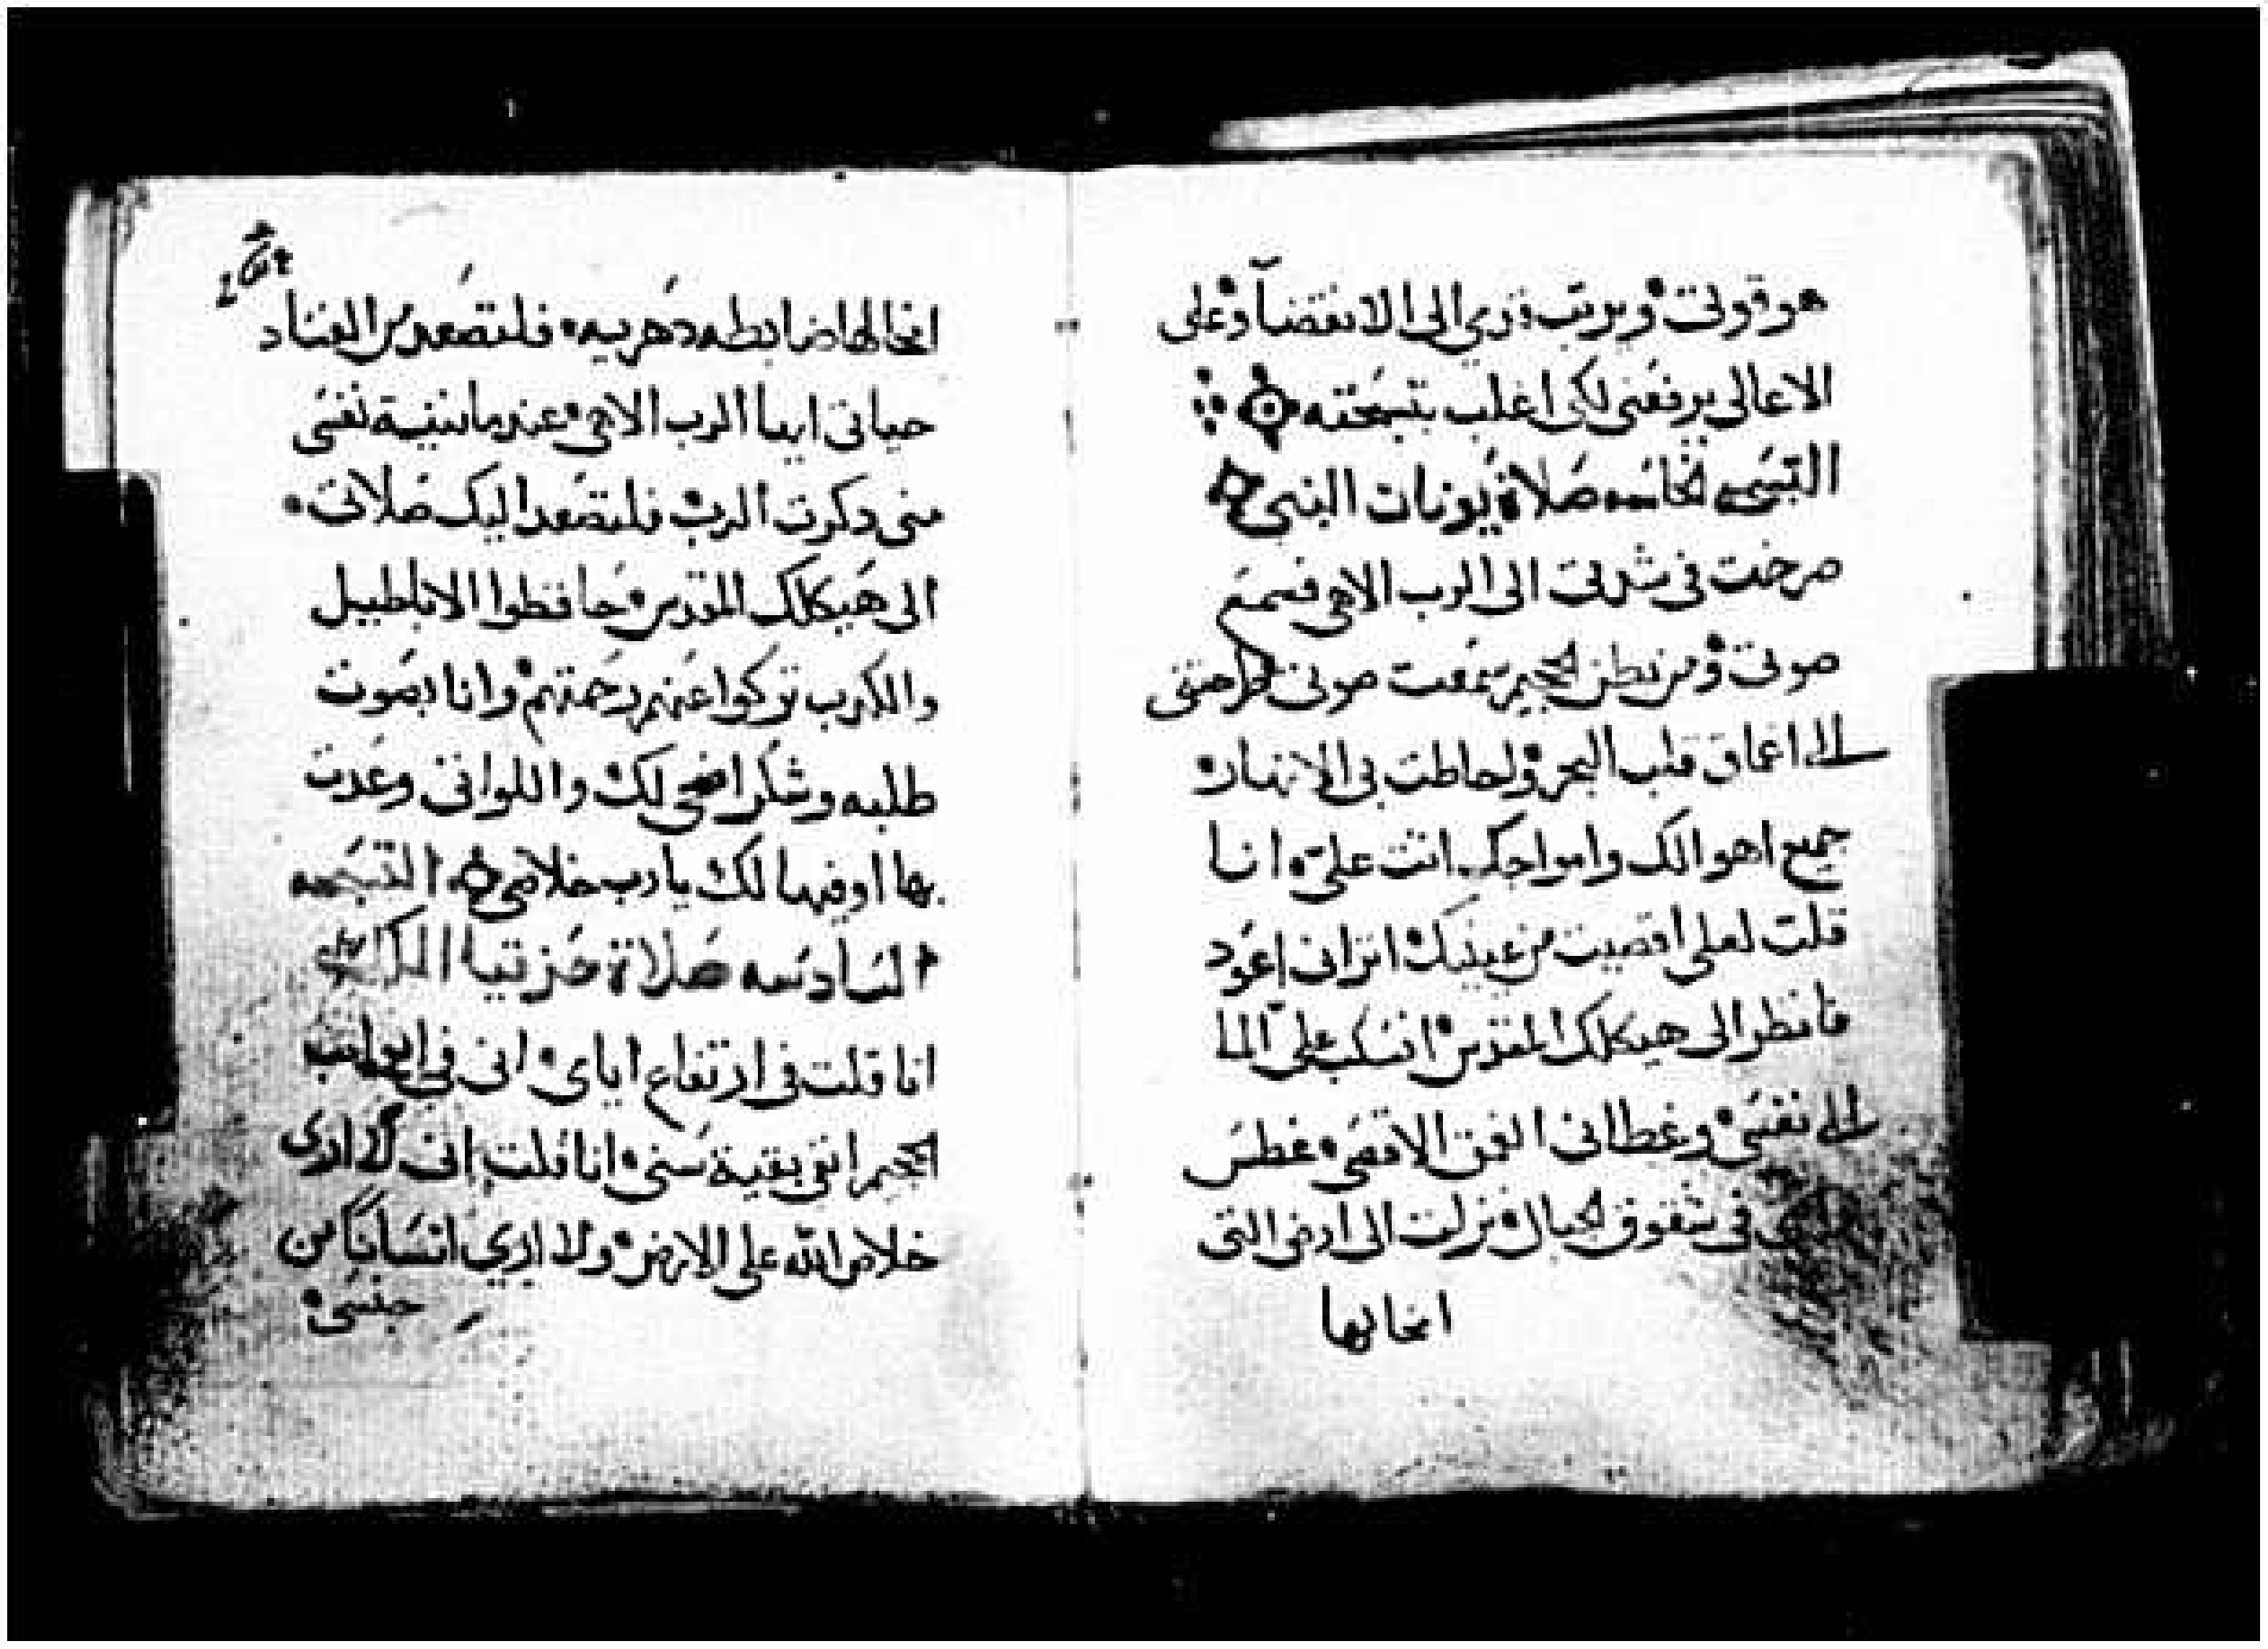 هو قوتى ويرتب ذري الى الانقضآ وعلى
الاعالى يرفعنى لكى اغلب بتسبحته
التسبحه الخامسه صلاة يونان النبى
صرخت فى شدتى الى الرب الاهى فسمع
صوتى ومن بطن الجحيم سمعت صوتى طرحتنى
الى اعماق قلب البحر ولحاطت بى الانهار
جميع اهوالك وامواجك اتت علىّ انا
قلت لعلى اقصيت من عينيك اتراى اعود
فانظر الى هيكلك المقدس انسكب علىّ الما
الى نفسى وغطانى الغمق الاقصى غطس
فى شقوق الجبال نزلت الى ارض التى
انخالها
انخالها ضابطه دهريه فلتصعد من الفساد
حياتى ايها الرب الاهى عند ما تنية نفسى
منى دكرت الرب فلتصعد اليك صلاتى
الى هيكلك المقدس حافظوا الاباطيل
والكدب تركوا عنهم رحمتهم وانا بصوت
طلبه وشكر اضحى لك واللواتى وعدت
بها اوفيها لك يا رب خلاصى التسبحه
السادسه صلاة حزقيا الملك
انا قلت فى ارتفاع اياى انى فى ابواب
الجحيم ابقى بقية سنى انا قلت انى لا ارى
خلاص الله على الارض ولا اري انسانًا من
جنسى